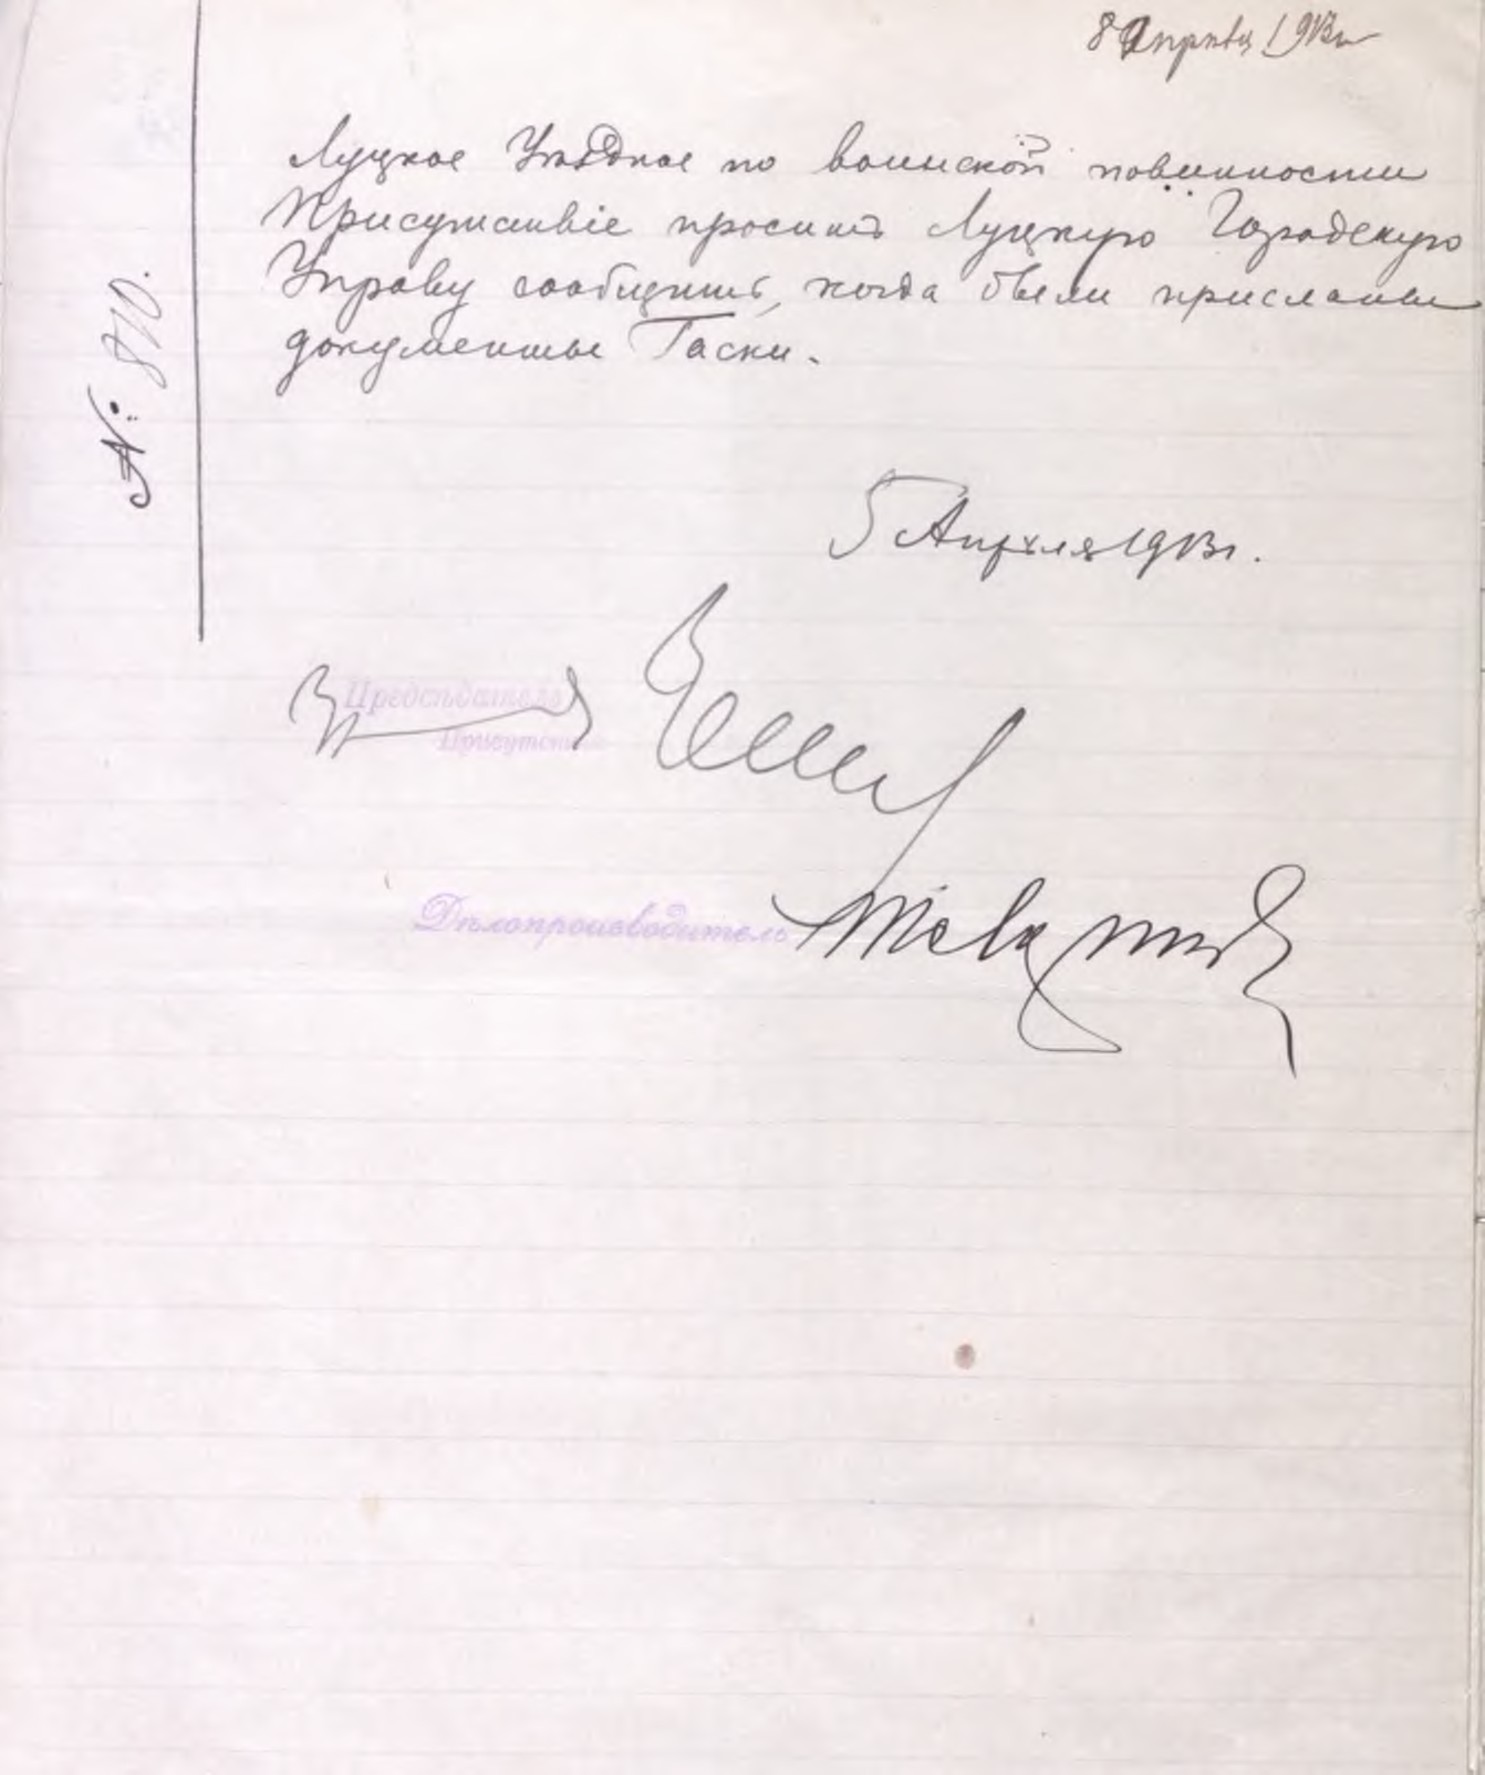 8 Апрѣля 1913 г
Луцкое Уѣздное по воинской повинности
Присутствіе проситъ Луцкую Городскую
Управу сообщить, когда были присланы
документы Гаски.
№ 810.
5 Апрѣля 1913 г.
Предсѣдатель
Присутствія
Дѣлопроизводитель